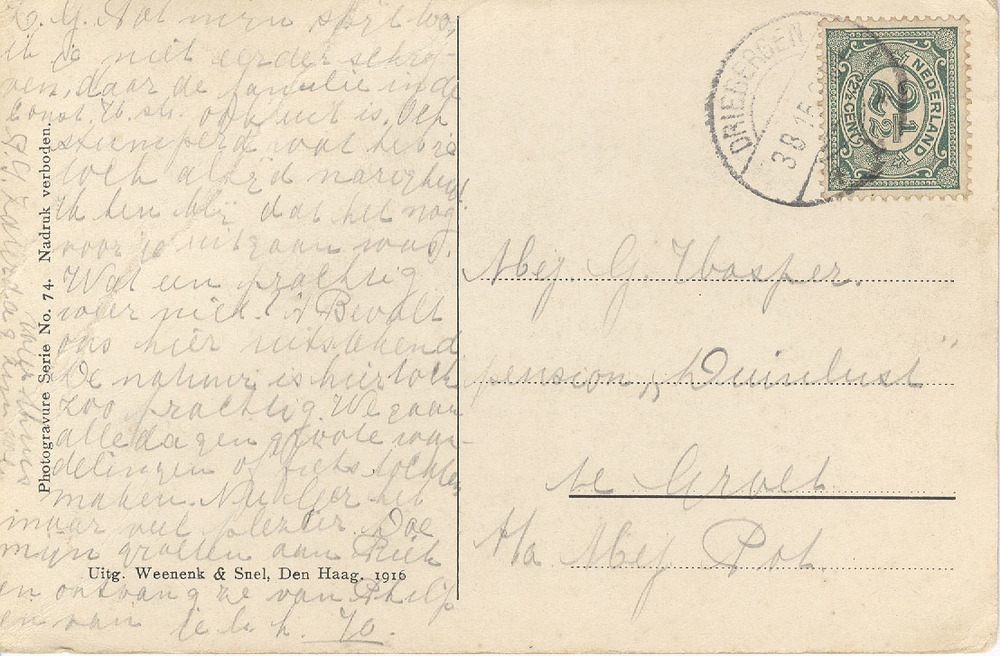 L. G. Wat mijn spijt wa,
ik je niet eerder schrij
ven, daar de familie in de
ook uit is. Och
stumperd wat heb je
toch altijd narigheid.
Ik ben blij dat het nog
voor je uitgaan was.
Wat een prachtig
weer niet? Bevalt
ons hier uitstekend
De natuur is hier toch
zoo prachtig. We gaan
alle dagen groote wan-
delingen of fiets tochten
maken. Nu Ger het
maar veel plezier. Doe
mijn groeten aan Riek
en ontvang ze van Philip
en van je l. h. Jo.
Photogravure Serie No. 74. Nadruk verboden.
Uitg. Weenenk & Snel, Den Haag. 1916
DRIEBERGEN
3 8 15
NEDERLAND
2½
2½ CENT
Mej. G.
pension „Duinlust"
te Groet
Mej Pot.